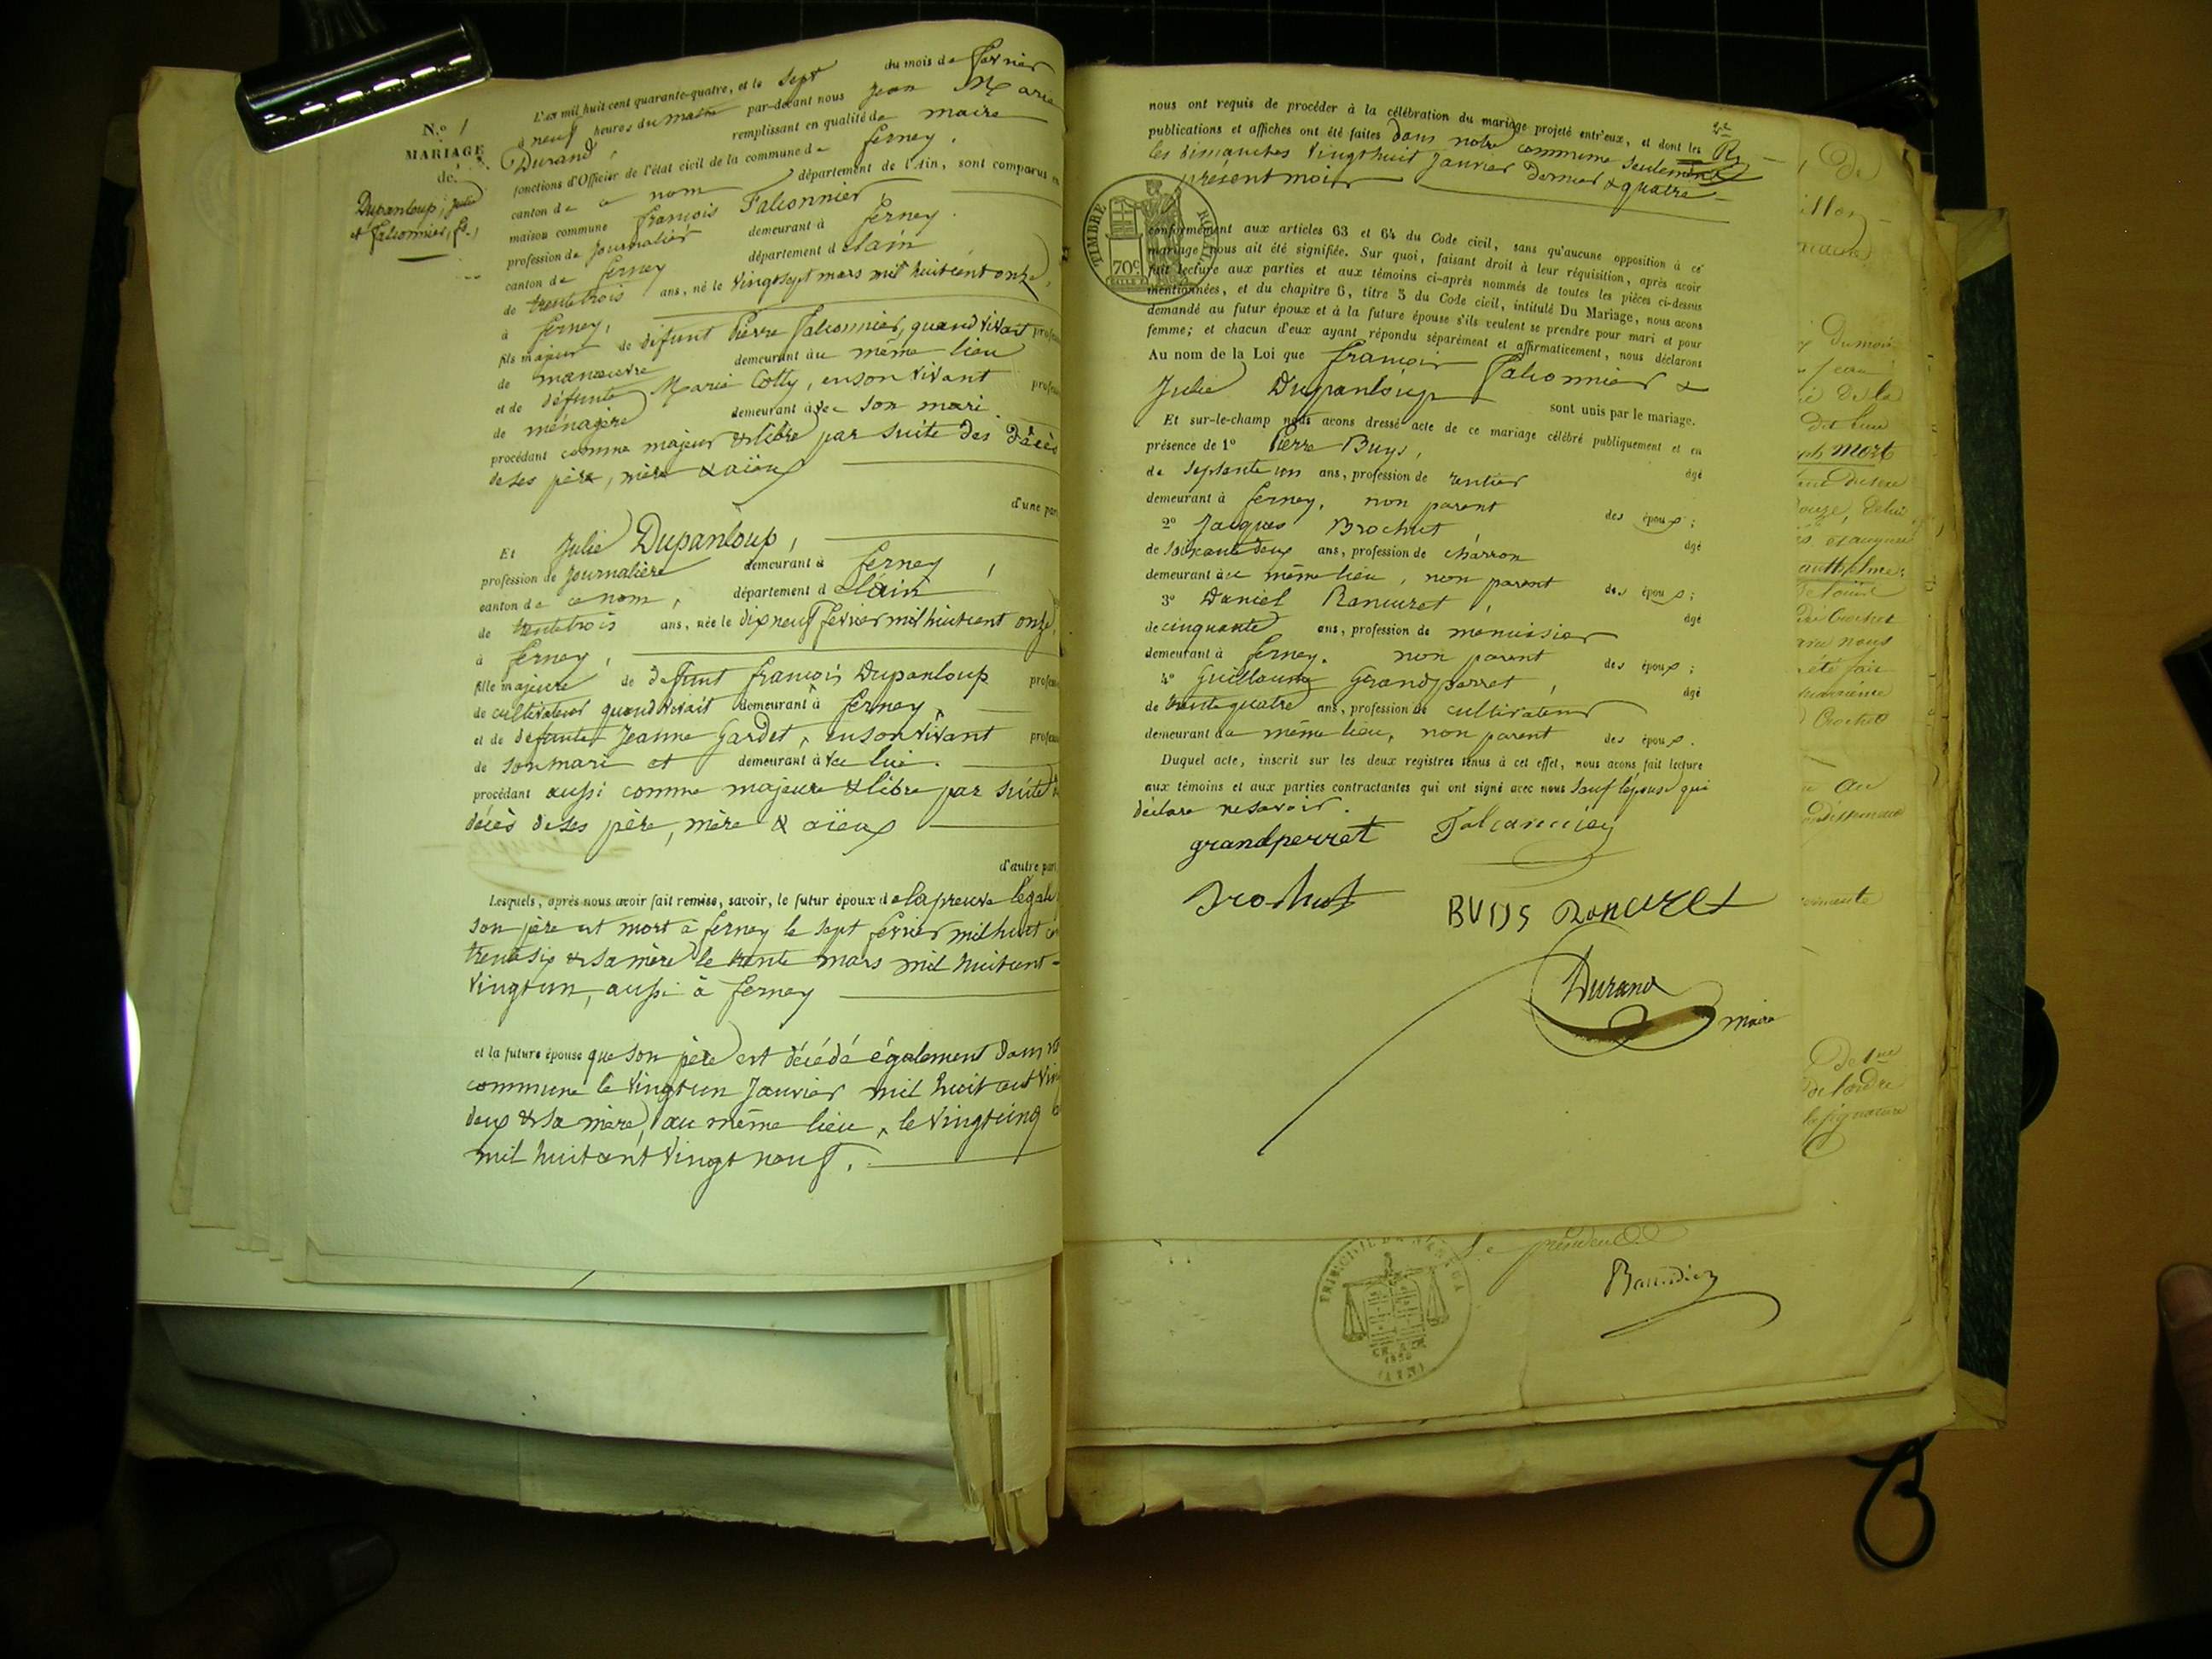 N.º 1
MARIAGE
de
Dupanloup, Julie
et falconnier, fs.,
L'an mil huit cent quarante-quatre, et le Sept du mois de février
à neuf heures du matin par-devant nous Jean Marie
Durand, remplissant en qualité de maire
fonctions d'Officier de l'état civil de la commune de ferney.
canton de ce nom département de l'Ain, sont comparus en
maison commune françois Falconnier
profession de Journalier demeurant à ferney.
canton de ferney département de lain
de trente trois ans, né le Vingt sept mars mil huit cent onze,
à ferney,
fils majeur de défunt Pierre falconnier, quand vivait profes
de manœuvre demeurant au même lieu
et de défunte Marie Cotty, en son vivant profes
de ménagère demeurant avec son mari.
procédant comme majeur & libre par suite des décès
de ses père, mère & aïeux
d'une part
Et Julie Dupanloup,
profession de Journalière demeurant à ferney,
canton de ce nom, département de lain
de trente trois ans, née le dix neuf février mil huit cent onze,
à ferney,
fille majeure de défunt françois Dupanloup profes
de cultivateur quand vivait demeurant à ferney,
et de défunte Jeanne Gardet, en son vivant profes
de son mari et demeurant avec lui.
procédant aussi comme majeure & libre par suite
décès de ses père, mère & aïeux
d'autre part
Lesquels, après nous avoir fait remise, savoir, le futur époux de la preuve légale
son père est mort à ferney le sept février mil huit
trente six & sa mère le trente mars mil huit cent
vingt un, aussi à ferney
et la future épouse que son père est décédé également dans
commune le vingt un Janvier mil huit cent
deux & sa mère, au même lieu, le vingt cinq
mil huit cent vingt neuf.
nous ont requis de procéder à la célébration du mariage projeté entr'eux, et dont les
publications et affiches ont été faites dans notre commune seulement
les dimanches vingt huit Janvier dernier & quatre
présent mois
TIMBRE ROYAL
70c
conformément aux articles 63 et 64 du Code civil, sans qu'aucune opposition à ce
mariage nous ait été signifiée. Sur quoi, faisant droit à leur réquisition, après avoir
fait lecture aux parties et aux témoins ci-après nommés de toutes les pièces ci-dessus
mentionnées, et du chapitre 6, titre 5 du Code civil, intitulé Du Mariage, nous avons
demandé au futur époux et à la future épouse s'ils veulent se prendre pour mari et pour
femme; et chacun d'eux ayant répondu séparément et affirmativement, nous déclarons
Au nom de la Loi que françois falconnier &
Julie Dupanloup sont unis par le mariage.
Et sur-le-champ nous avons dressé acte de ce mariage célébré publiquement et en
présence de 1º Pierre Buys, âgé
de septante un ans, profession de rentier
demeurant à ferney, non parent des époux;
2º Jacques Brochut âgé
de soixante deux ans, profession de charron
demeurant au même lieu, non parent des époux;
3º Daniel Rancuret, âgé
de cinquante ans, profession de menuisier
demeurant à ferney. non parent des époux;
4º Guillaume Grandperret, âgé
de trente quatre ans, profession de cultivateur
demeurant au même lieu, non parent des époux.
Duquel acte, inscrit sur les deux registres tenus à cet effet, nous avons fait lecture
aux témoins et aux parties contractantes qui ont signé avec nous sauf l'épouse qui
déclare ne savoir.
grandperret Falconnier
Brochut BUYS Rancuret
Durand
maire
Le président